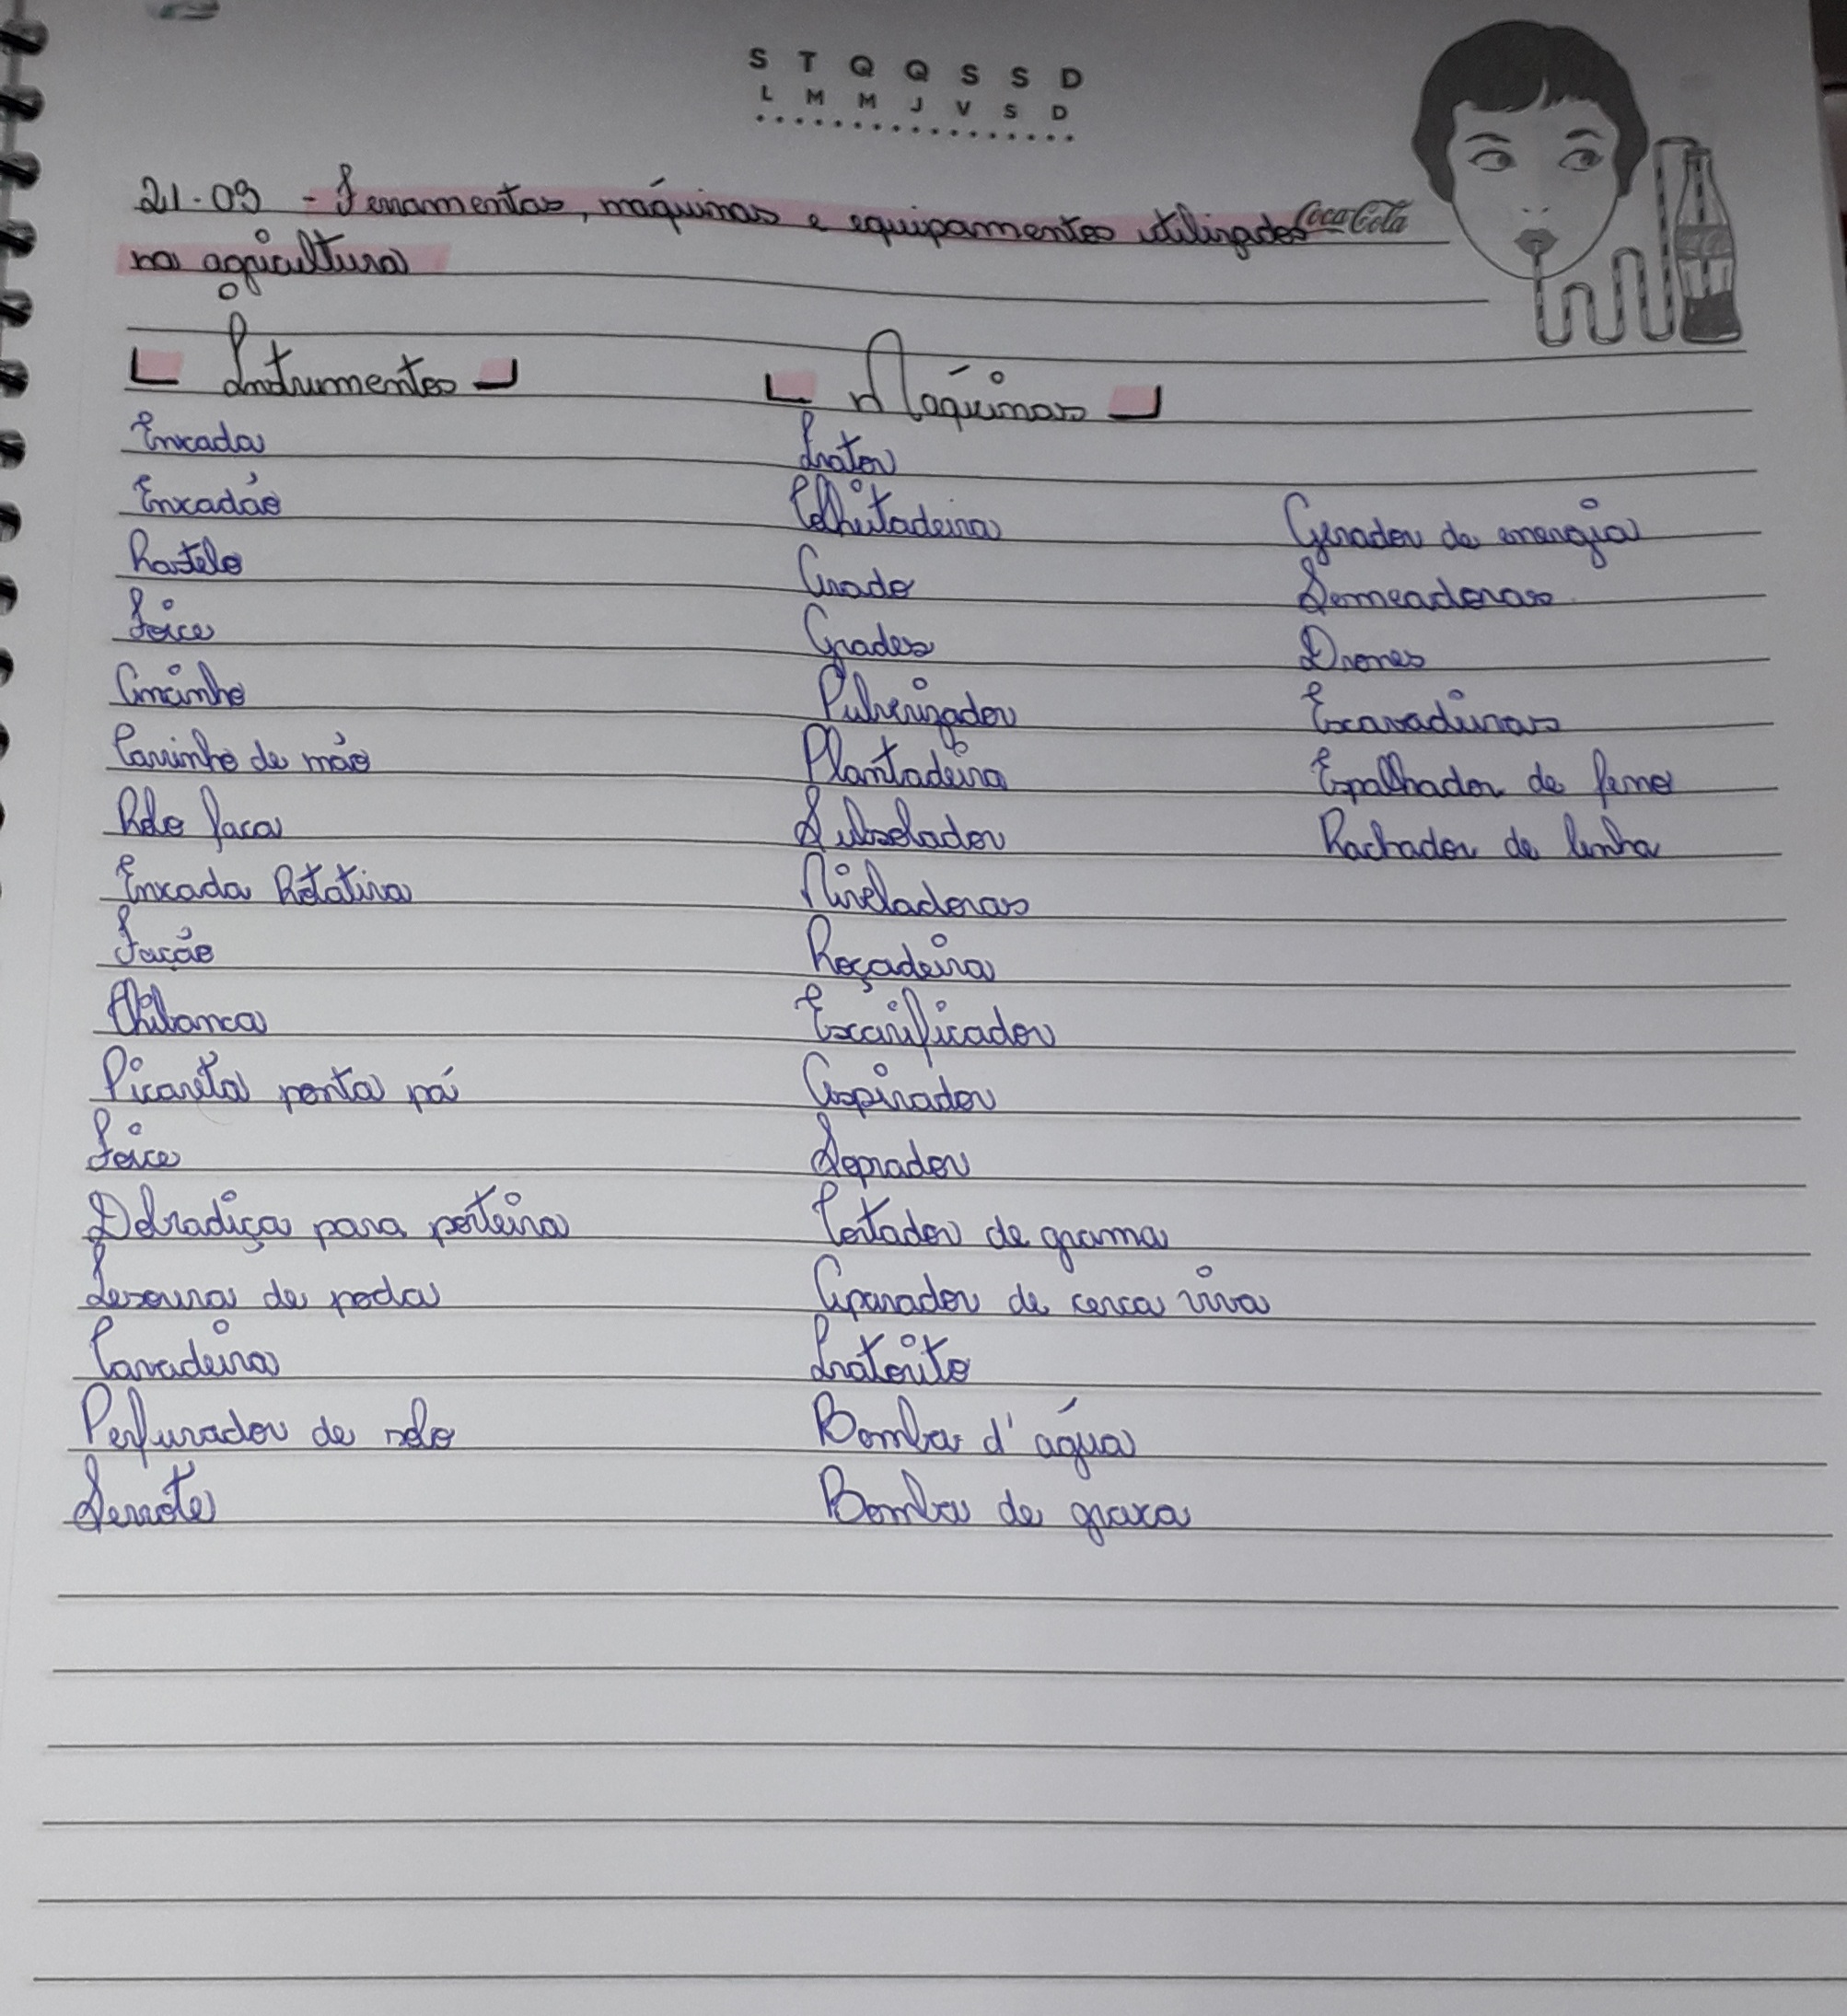 S T Q Q S S D
L M M J V S D
21.03 - Ferramentas, máquinas e equipamentos utilizados
Coca-Cola
na agricultura
Intrumentos
Máquinas
Enxada
Enxadão
Rastelo
Foice
Ancinho
Carrinho de mão
Rolo faca
Enxada Rotativa
Facão
Chibanca
Picareta ponta pá
Foice
Dobradiça para porteira
Tesoura de poda
Cavadeira
Perfurador de solo
Serrote
Trator
Colheitadeira
Arado
Grades
Pulverizador
Plantadeira
Subsolador
Niveladoras
Roçadeira
Escarificador
Aspirador
Soprador
Cortador de grama
Aparador de cerca viva
Tratorito
Bomba d'água
Bomba de graxa
Gerador de energia
Semeadoras
Drones
Escavadeiras
Espalhador de feno
Rachador de lenha